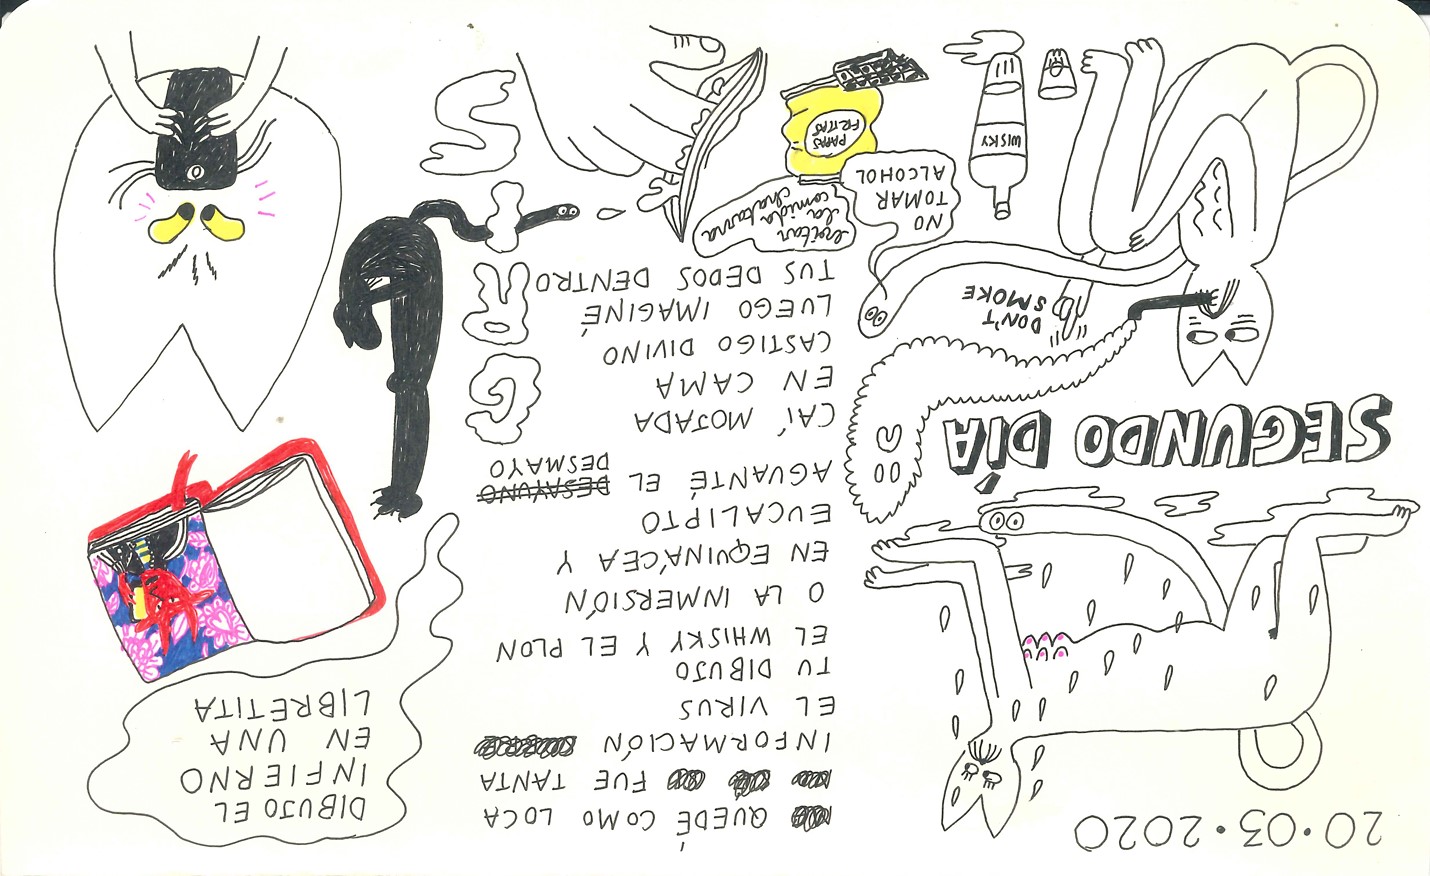 20·03·2020
SEGUNDO DÍA
DON'T
SMOKE
NO
TOMAR
ALCOHOL
WISKY
QUEDÉ COMO LOCA
FUE TANTA
INFORMACIÓN
EL VIRUS
TU DIBUJO
EL WHISKY Y EL PLON
O LA INMERSIÓN
EN EQUINÁCEA Y
EUCALIPTO
AGUANTÉ EL DESAYUNO
DESMAYO
CAÍ MOJADA
EN CAMA
CASTIGO DIVINO
LUEGO IMAGINÉ
TUS DEDOS DENTRO
evitar
la
comida
chatarra
PAPAS
FRITAS
GRIS
DIBUJO EL
INFIERNO
EN UNA
LIBRETITA